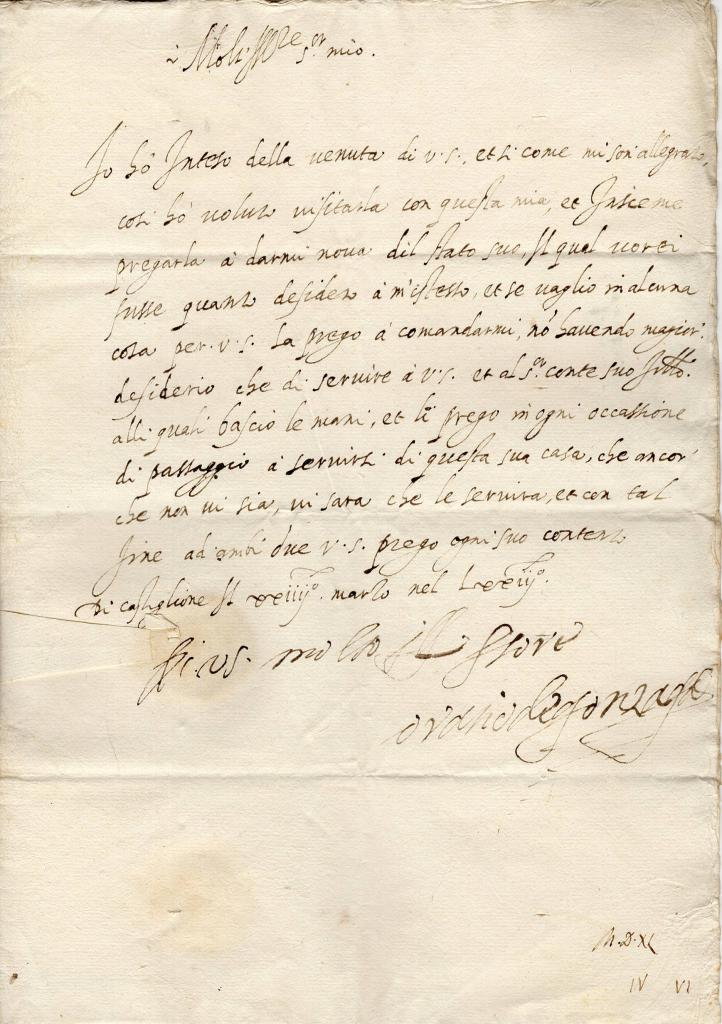 Molt Ill.re s.or mio.
Io hò Inteso della venuta di v.s., et si come mi son allegrato,
cosi hò voluto visitarla con questa mia, et Insieme
pregarla à darmi nova dil stato suo, Il qual vorei
fusse quanto desidero à m'istesso, et se vaglio in alcuna
cosa per. v.s. la prego à comandarmi, nō havendo magior
desiderio che di servire à v.s. et al s.or conte suo
alli quali bascio le mani, et li prego in ogni occassione
di passaggio à servirsi di questa sua casa, che ancor
che non vi sia, vi sara che le servira, et con tal
fine ad ambi due v.s. prego ogni suo contento
Di castiglione Il xxiiij.o marzo nel Lxxiij.o
Di. v.s. molto ill s.ore
oratio de gonzaga
M.D.XL
IV VI